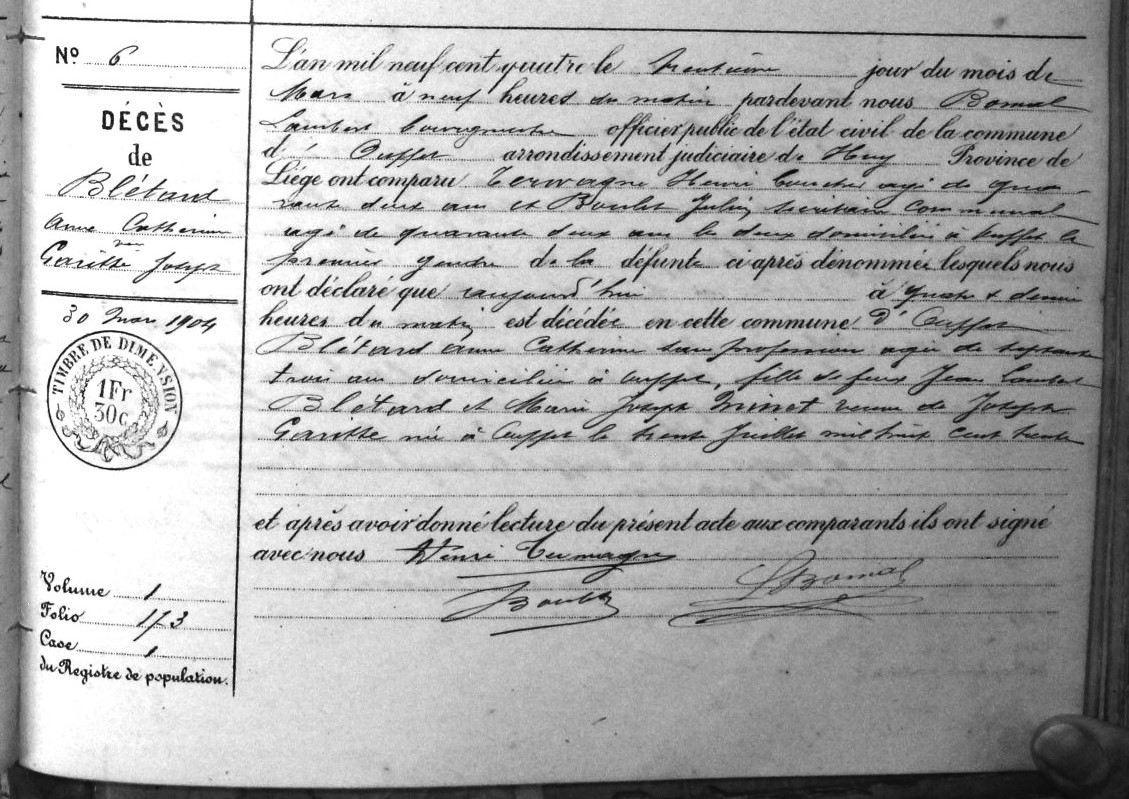 Nº 6
DÉCÈS
de
Blétard
Anne Catherine
Garitte Joseph
30 Mars 1904
TIMBRE DE DIMENSION
1Fr
30c
Volume 1
Folio 173
Case 1
du Registre de population.
L'an mil neuf cent quatre le trentième jour du mois de
Mars à neuf heures du matin pardevant nous Bomal
Lambert bourgmestre officier public de l'état civil de la commune
d' Ouffet arrondissement judiciaire de Huy Province de
Liége ont comparu Terwagne Henri boucher agé de qua
rante deux ans et Boulet Julien secrétaire communal
agé de quarante deux ans les deux domiciliés à Ouffet le
premier gendre de la défunte ci après dénommée lesquels nous
ont déclaré que aujourd'hui à quatre & demie
heures du matin est décédée en cette commune d' Ouffet
Blétard Anne Catherine sans profession agée de septante
trois ans domiciliée à Ouffet, fille de feus Jean Lambert
Blétard et Marie Joseph Minet veuve de Joseph
Garitte née à Ouffet le trente Juillet mil huit cent trente
et après avoir donné lecture du présent acte aux comparants ils ont signé
avec nous Henri Terwagne
Boulet LBomal